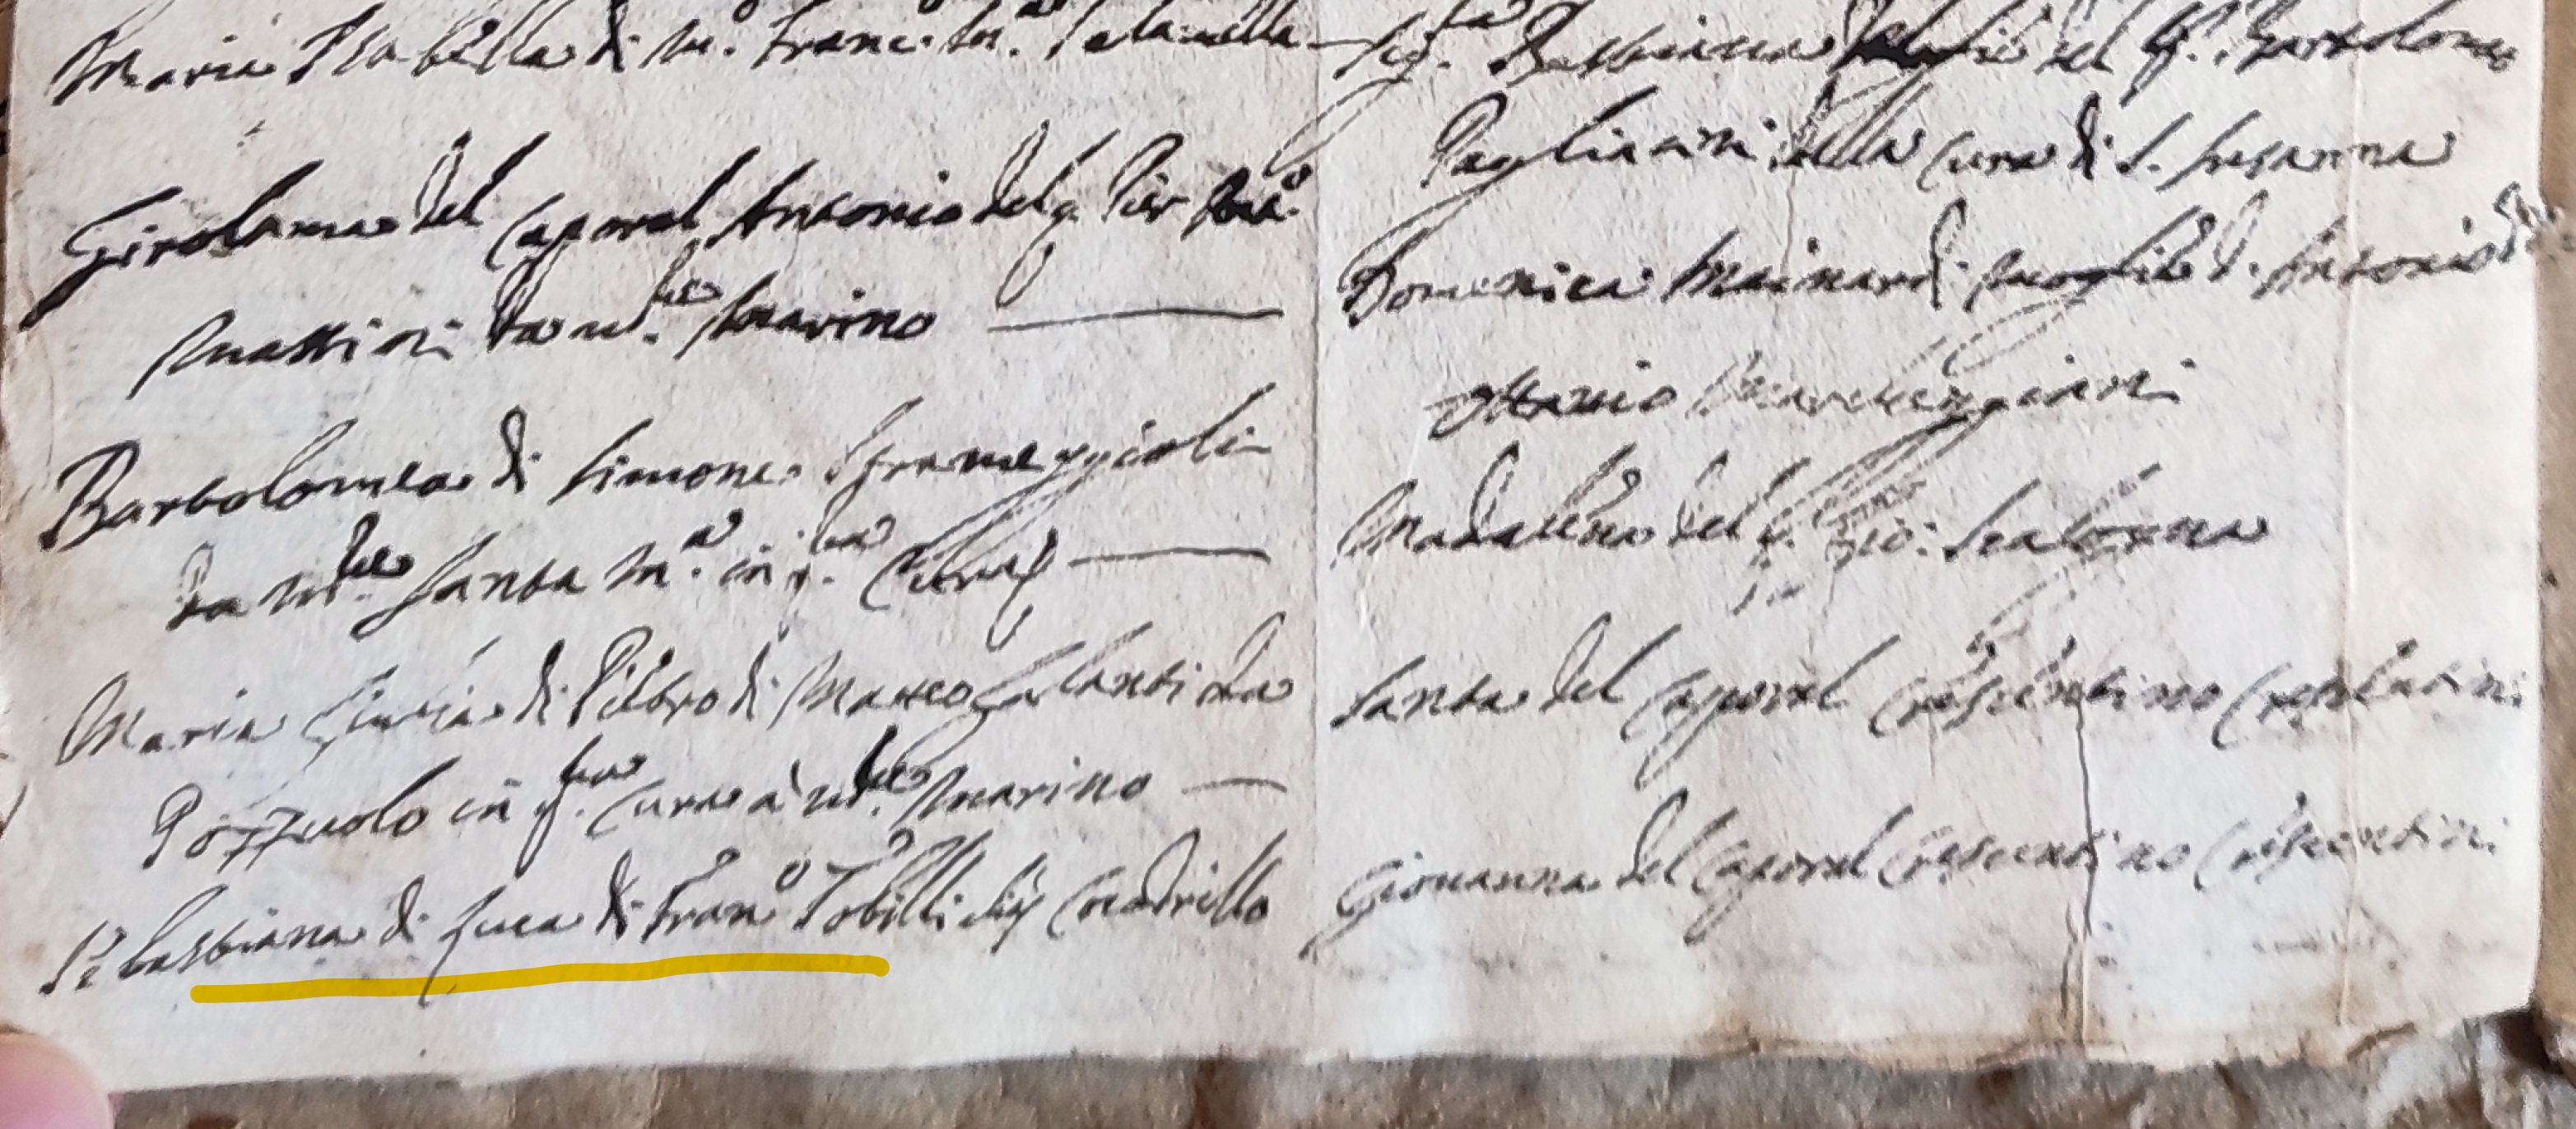 Maria Isabella di m.º Franc.º M.ª
Girolama del Caporal Antonio del q. Pier
Mattioli da m.te Marino
Bartolomea di Simone
da m.te Santa M.ª in q.ta Cura
Maria Giulia di Pietro di Matteo Galanti da
Pozzuolo in q.ta Cura a m.te Marino
Sebastiana di Luca di Fran.º Tobilli
Sig.ra Bastiana del q. Bartolomeo
Pagliarini della Cura di S. Susanna
Domenica Mainardi moglie d. Antonio
Ottavio Marcheggiani
Madalena del q. Gio: Scatorna
Santa del Caporal Crescentino Crescentini
Giovanna del Caporal Crescentino Crescentini